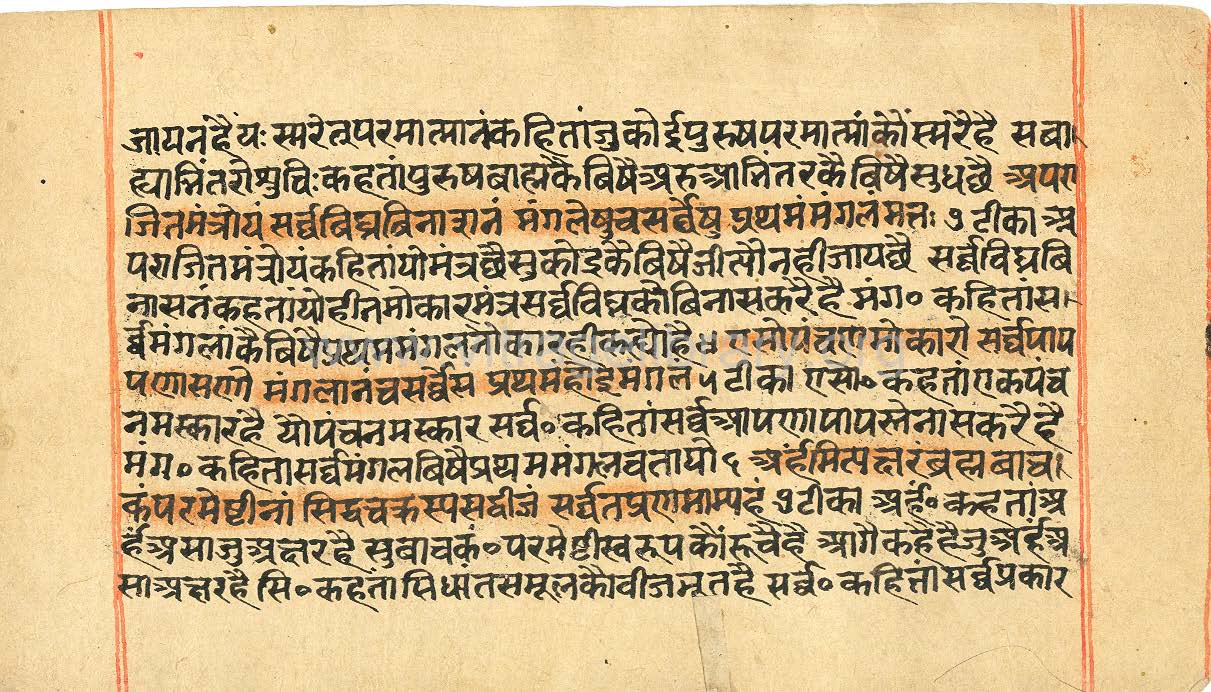 जायनहै यः स्मरेत्परमात्मानं कहितां जु कोई पुरुष परमात्मां कौं स्मरै है सबा
ह्याभिंतरो शुचिः कहतां पुरुष बाह्मकै बिषै अरु आभिंतरकै बिषै सुध छै अपरा
जितमंत्रोयं सर्व्वबिघ्नबिनाशनं मंगलेषु च सर्व्वेषु प्रथमं मंगलं मतः ५ टीका अ
पराजितमंत्रोयं कहितां यो मंत्र छै सु कोइकै बिषै जीत्यौ नही जाय छै सर्व्वबिघ्नबि
नासनं कहतां यौ ही नमोकारमंत्र सर्व्व बिघ्नकौ बिनास करै है मंग॰ कहितां स
र्व्व मंगलांकै बिषै प्रथम मंगल नमोकार ही कह्यौ है ॥ एसो पंचणमोकारो सर्व्वपाप
पणासणो मंगलानं च सर्व्वेस प्रथमं होइ मंगलं ५ टीका एसो॰ कहतां एक पंच
नमस्कार है यौ पंचनमस्कार सर्व्व॰ कहितां सर्व्व आपणा पापस्नेनास करै है
मंग॰ कहिता सर्व्व मंगल बिषै प्रथम मंगल बतायो ६ अर्हमित्यक्षरं ब्रह्म बाच
कं परमेष्टीनां सिद्धचक्रस्य सद्बीजं सर्व्वत प्रणमाम्यहं ७ टीका अर्हं॰ कहतां अ
र्हं असा जु अक्षर है सु बाचकं॰ परमेष्टी स्वरूप कौं रूचै है आगै कहै है जु अर्हं अ
सा अक्षर है सि॰ कहतां सिधांत समूलकौ बीजभूत है सर्व्व॰ कहितां सर्व्व प्रकार